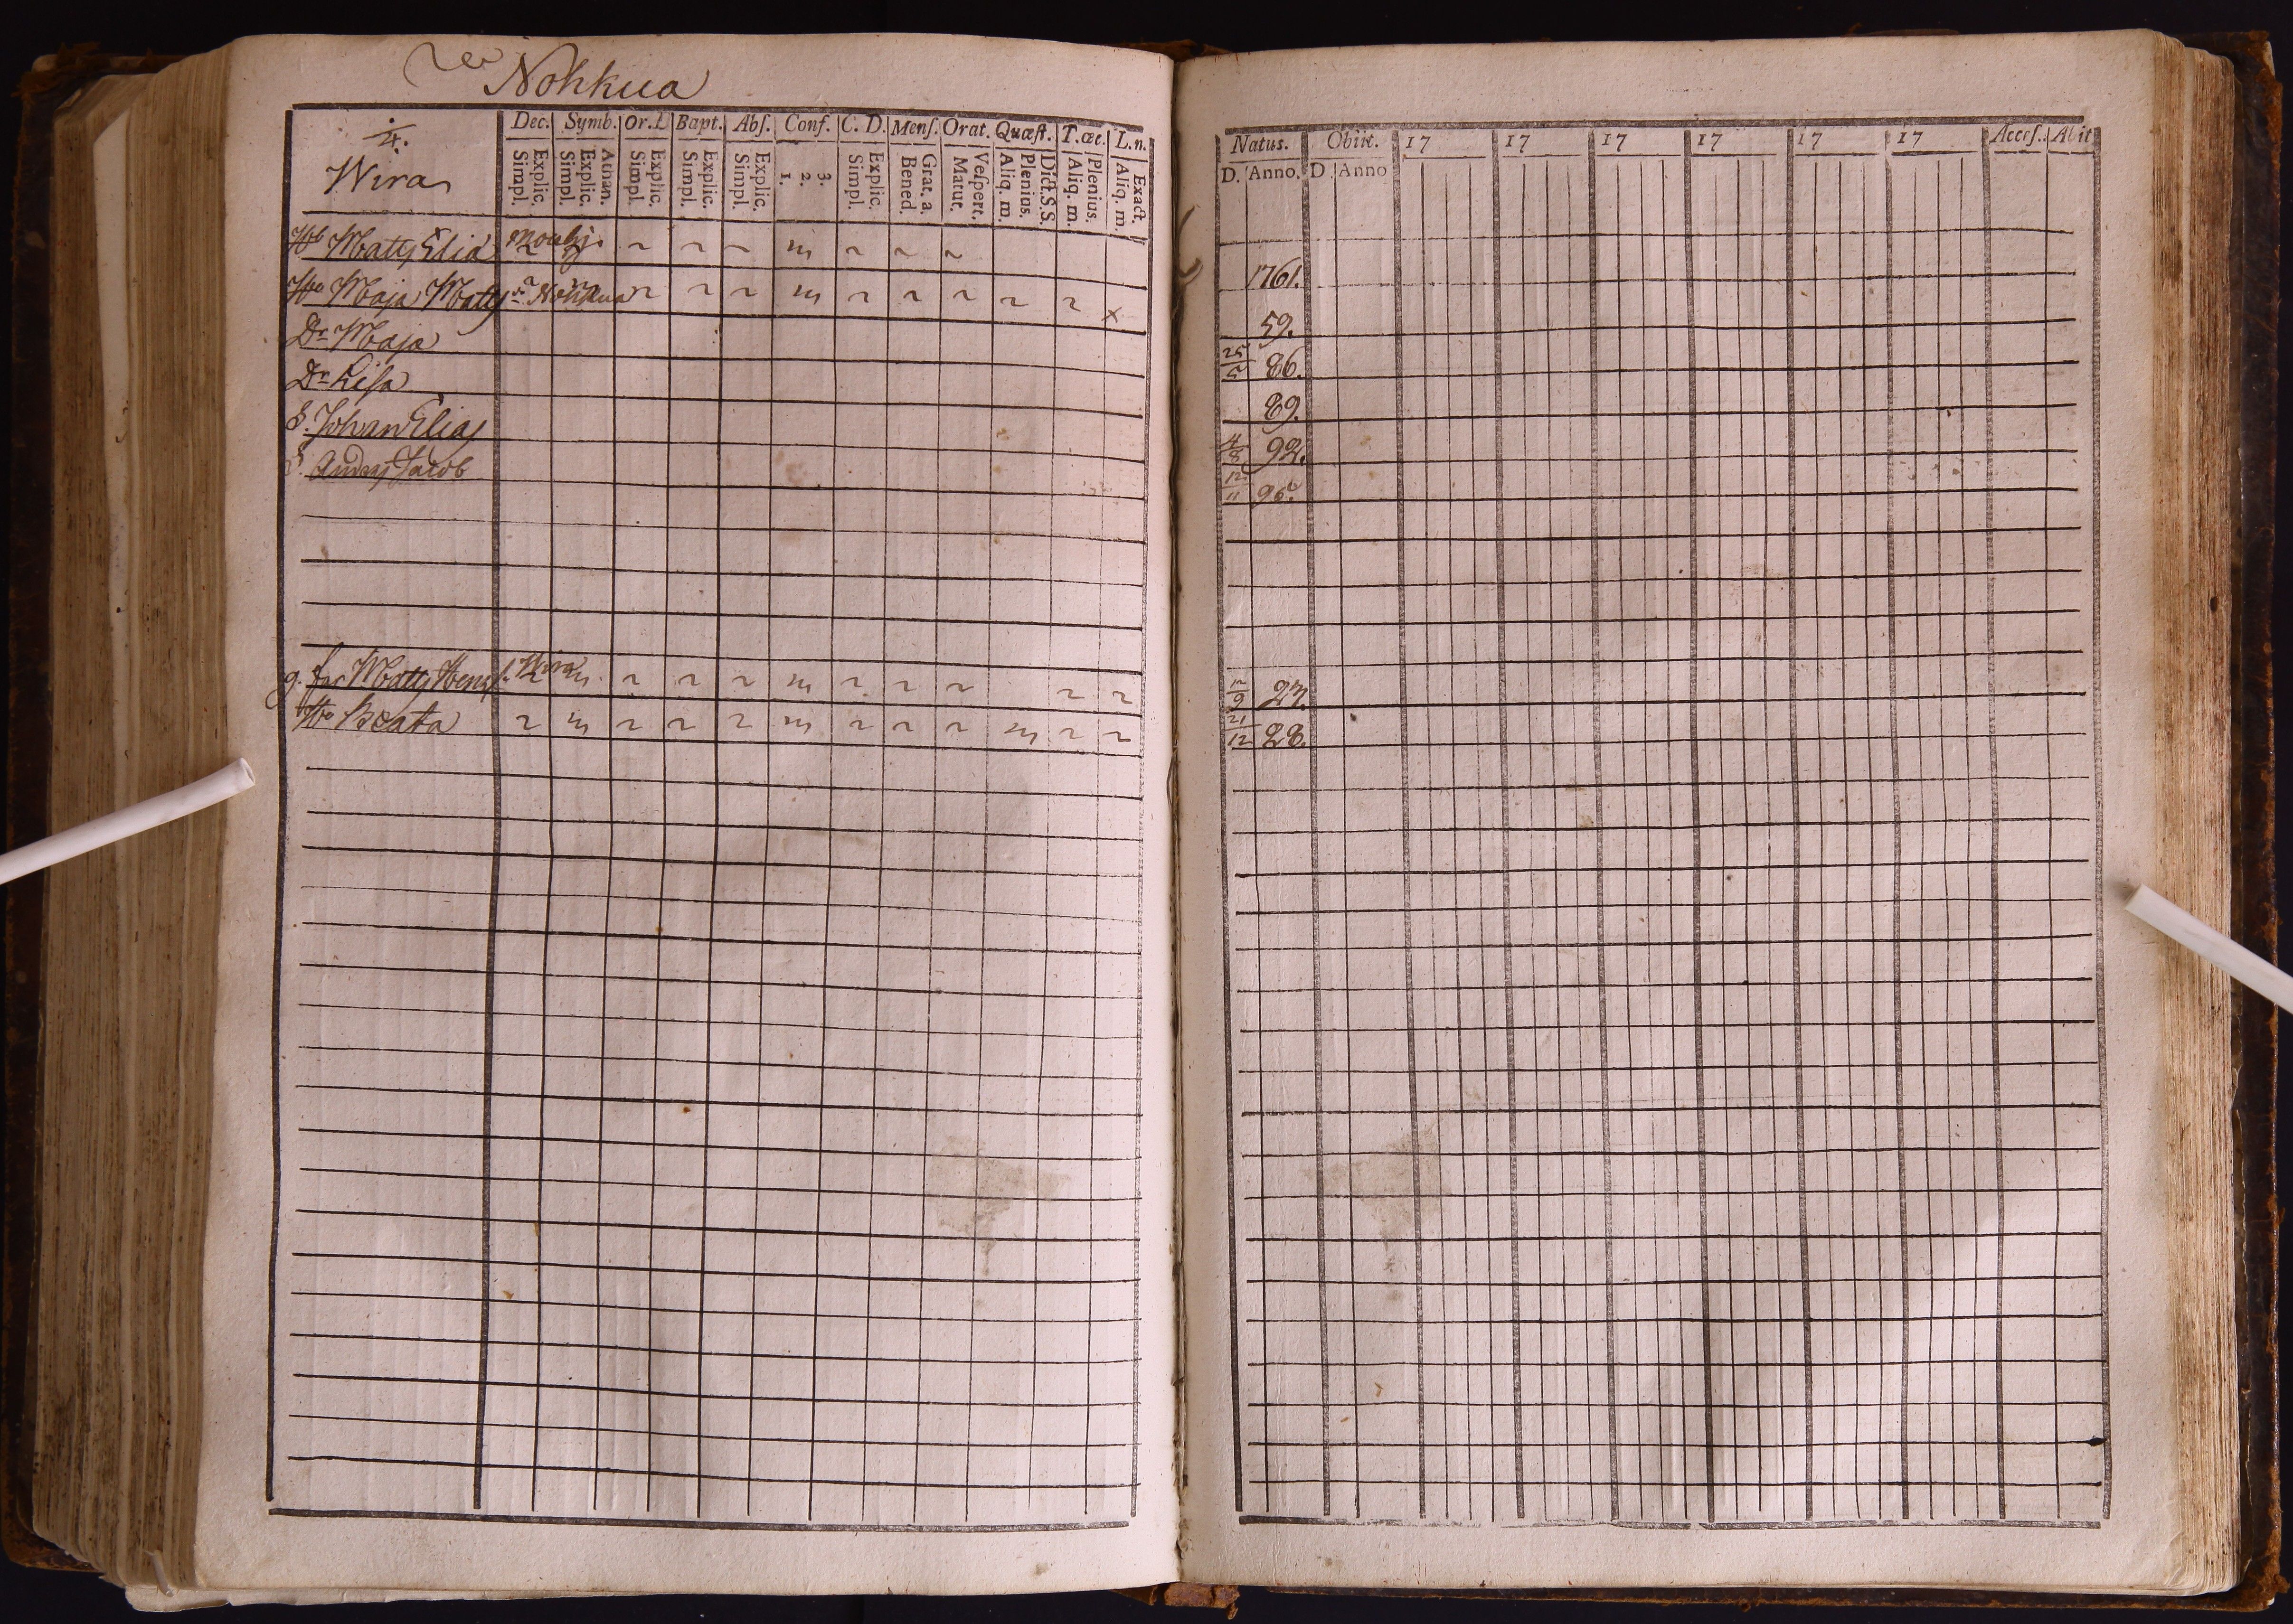 Nohkua
Dec. Symb. Or. D. Bapt. Abſ. Conf. C. D. Menſ. Orat. Quæſt. T. æc. L. n.
Explic. Simpl. Athan. Explic. Simpl. Explic. Simpl. Explic. Simpl. Explic. Simpl. 3. 2. 1. Explic. Simpl. Grat. a. Bened. Veſpert. Matut. Dict. S.S. Plenius. Aliq. m. Plenius. Aliq. m. Exact. Aliq. m.
Wira
Natus. Obiit. 17 17 17 17 17 17 Acceſ. Abit
D. Anno. D Anno
Matts Elia 1761.
Maja Matts Nohkua 59.
Dr Maja 25/5 86.
Dr Liſa 89.
S. Johan Elias 4/8 92.
S. Anders Jacob 12/11 95.
g. far Matts Wira 12/9 27.
Beata 21/12 28.